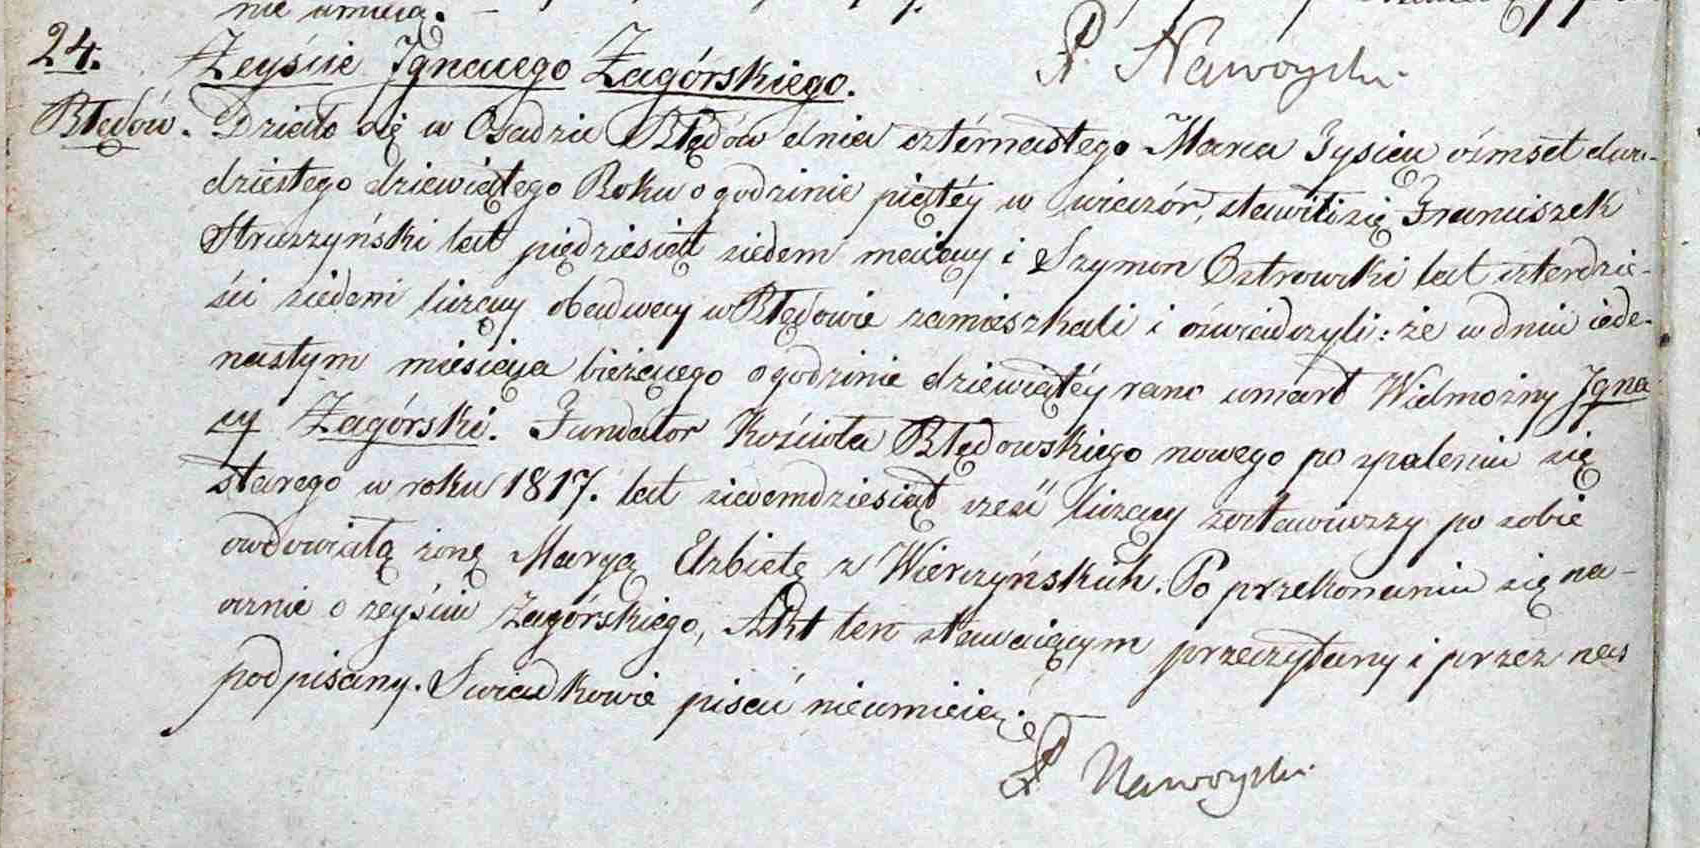 nie umieią.
24. Zeyście Ignacego Zagórskiego.
Błędów. Działo się w Osadzie Błędów dnia czternastego Marca Tysiąc ośmset dwu-
dziestego dziewiątego Roku o godzinie piątéy w wieczór, stawili się Franciszek
Struszyński lat piędziesiąt siedem maiący i Szymon Ostrowski lat czterdzie-
ści siedem liczący obadway w Błędowie zamieszkali i oświadczyli: że w dniu iede-
nastym miesiąca bieżącego o godzinie dziewiątéy rano umarł Wielmożny Igna-
cy Zagórski. Fundator Kościoła Błędowskiego nowego po spaleniu się
starego w roku 1817. lat siedemdziesiąt sześć liczący zostawiwszy po sobie
owdowiałą żonę Maryą Elzbietę z Wierczyńskich. Po przekonaniu się na-
ocznie o zeyściu Zagórskiego, Akt ten stawaiącym przeczytany i przez nas
podpisany. Swiadkowie pisać nieumieią.